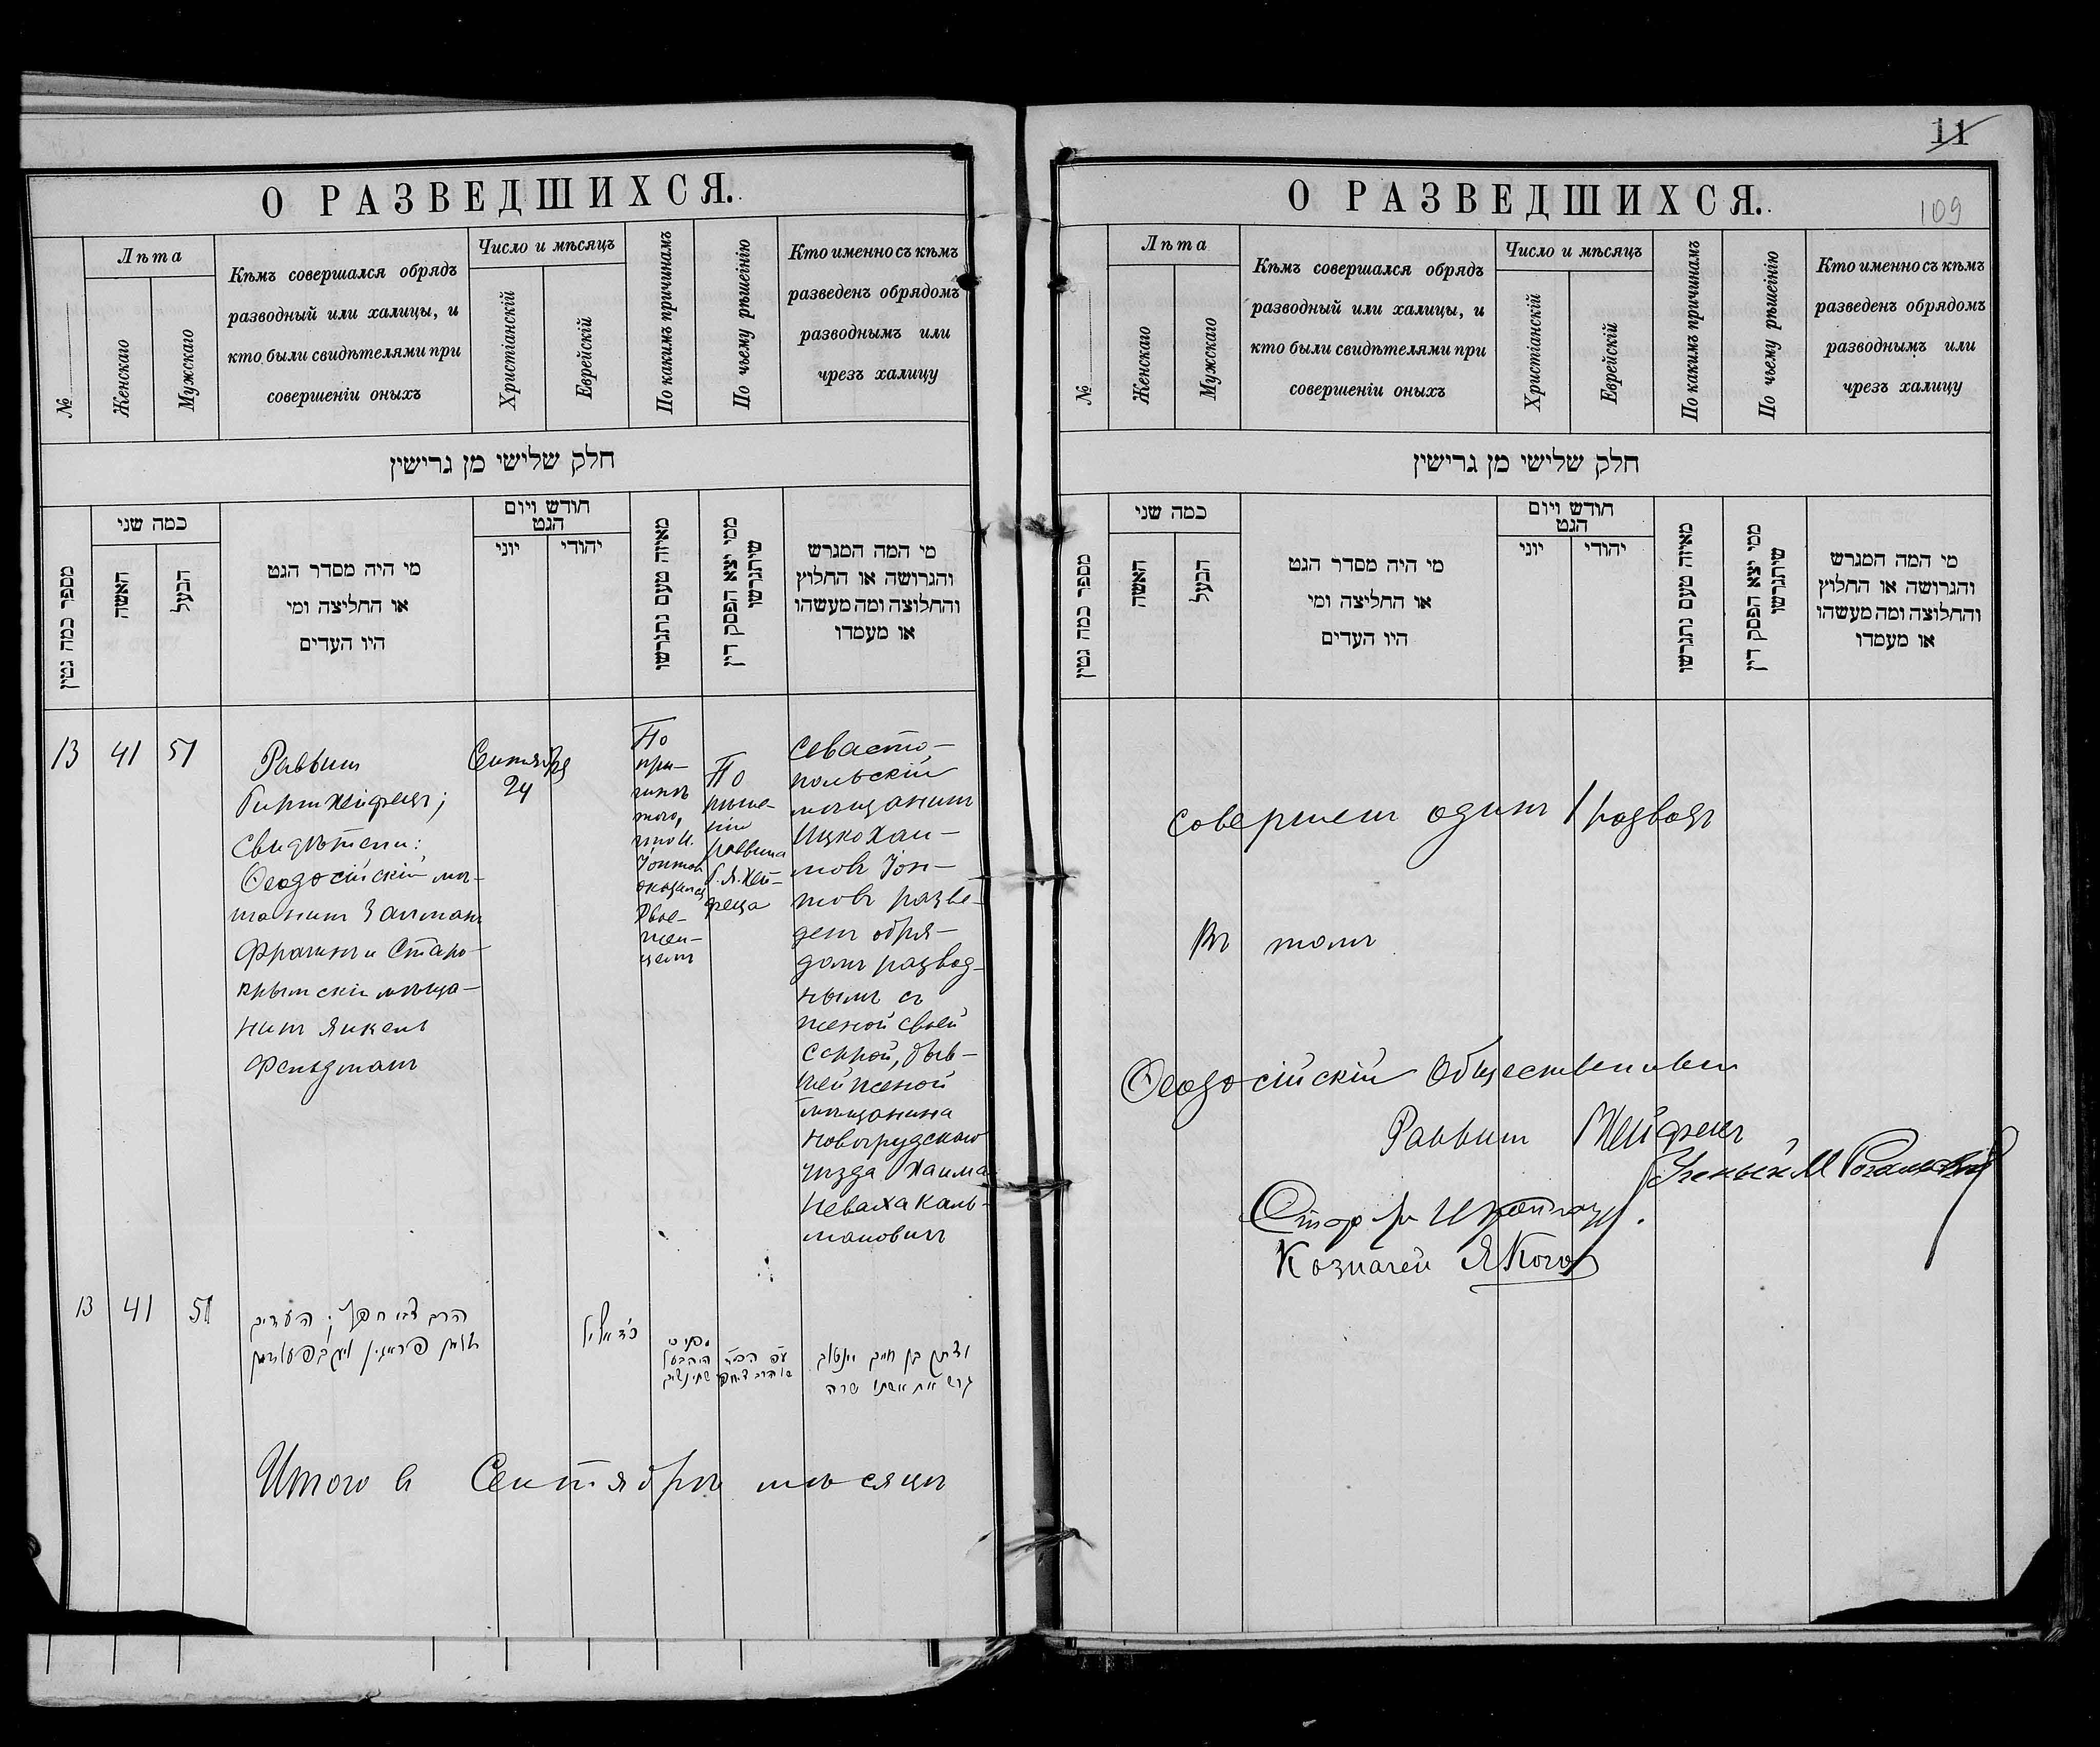 О РАЗВЕДШИХСЯ.
№
Лѣта
Женскаго
Мужскаго
Кѣмъ совершался обрядъ
разводный или халицы, и
кто были свидѣтелями при
совершеніи оныхъ
Число и мѣсяцъ
Христіанскій
Еврейскій
По какимъ причинамъ
По чьему рѣшенію
Кто именно съ кѣмъ
разведенъ обрядомъ
разводнымъ или
чрезъ халицу
חלק שלישי מן גרישין
מספר כמה גטין
כמה שני
האשה
הבעל
מי היה מסדר הגט
או החליצה ומי
היו העדים
חודש ויום
הגט
יוני
יהודי
מאיזה טעם נתגרשו
ממי יצא הפסק דין
שיתגרשו
מי המה המגרש
והגרושה או החלוץ
והחלוצה ומה מעשהו
או מעמדו
13
41
51
Раввин
Гирш Хейфецъ;
Свидѣтели:
Ѳеодосійскій мѣ-
щанинъ Залманъ
Фрагинъ и Старо-
крымскій мѣща-
нинъ Янкель
Фельдманъ
Сентября
24
По
при-
чинѣ
того,
что И.
Іонтовъ
оказался
Двое-
жен-
цемъ
По
рѣше-
нію
раввина
Г. Я. Хей-
феца
Севасто-
польскій
мѣщанинъ
Ицко Хаи-
мовъ Іон-
товъ разве-
денъ обря-
домъ развод-
нымъ съ
женой своей
Саррой, быв-
шей женой
мѣщанина
Новогрудскаго
уѣзда Хаима
Неваха Каль-
мановичъ
13
41
51
הרב צבי חפץ; העדים
זלמן פראגין ויעקב פעלדמאן
כ"ד אלול
מפני כי
היה בעל
שתי נשים
ע"פ הב"ד
של הרב
יצחק בן חיים יונטוב
גרש את אשתו שרה
Итого въ Сентябрѣ мѣсяцѣ
11
О РАЗВЕДШИХСЯ.
109
№
Лѣта
Женскаго
Мужскаго
Кѣмъ совершался обрядъ
разводный или халицы, и
кто были свидѣтелями при
совершеніи оныхъ
Число и мѣсяцъ
Христіанскій
Еврейскій
По какимъ причинамъ
По чьему рѣшенію
Кто именно съ кѣмъ
разведенъ обрядомъ
разводнымъ или
чрезъ халицу
חלק שלישי מן גרישין
מספר כמה גטין
כמה שני
האשה
הבעל
מי היה מסדר הגט
או החליצה ומי
היו העדים
חודש ויום
הגט
יוני
יהודי
מאיזה טעם נתגרשו
ממי יצא הפסק דין
שיתגרשו
מי המה המגרש
והגרושה או החלוץ
והחלוצה ומה מעשהו
או מעמדו
совершенъ одинъ 1 разводъ
Въ томъ
Ѳеодосійскій Общественный
Раввинъ Хейфецъ
Ученый М
Казначей Я